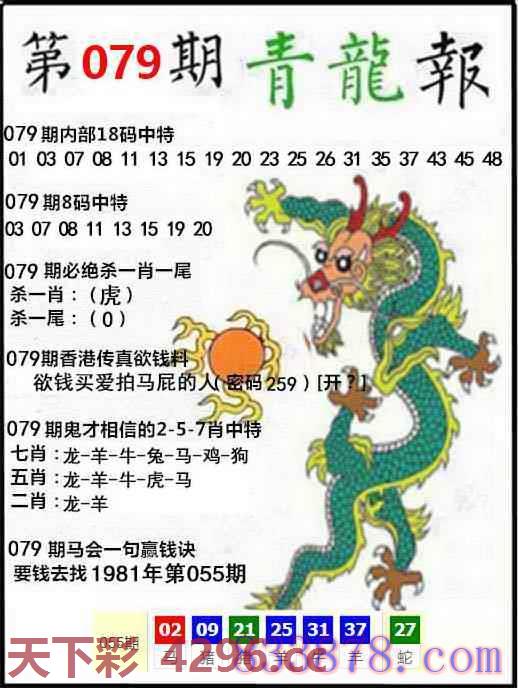 第079期青龍報
079期内部18码中特
01 03 07 08 11 13 15 19 20 23 25 26 31 35 37 43 45 48
079期8码中特
03 07 08 11 13 15 19 20
079期必绝杀一肖一尾
杀一肖：(虎)
杀一尾：(0)
079期香港传真欲钱料
欲钱买爱拍马屁的人(密码259)[开?]
079期鬼才相信的2-5-7肖中特
七肖：龙-羊-牛-兔-马-鸡-狗
五肖：龙-羊-牛-虎-马
二肖：龙-羊
079期马会一句赢钱诀
要钱去找1981年第055期
055期 02 09 21 25 31 37 27
猪 羊 羊 蛇
天下彩 4296.cc